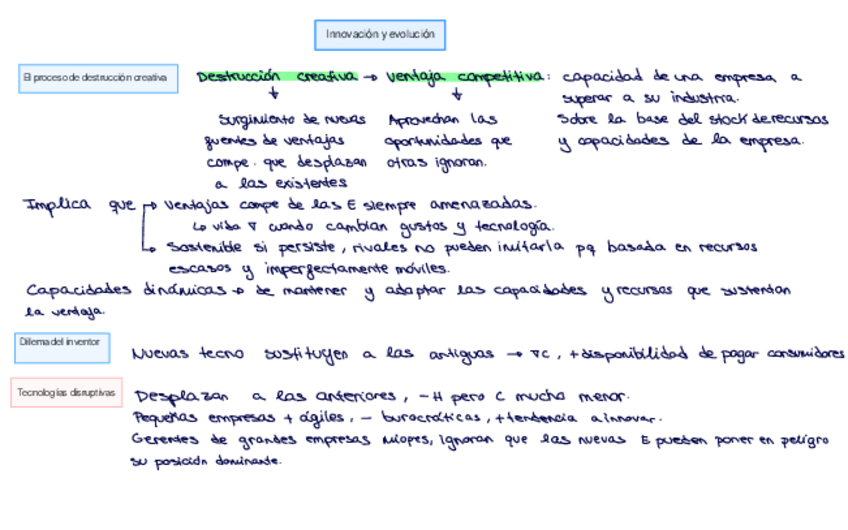 Innovación y evolución
El proceso de destrucción creativa
Destrucción creativa → ventaja competitiva: capacidad de una empresa a
superar a su industria.
Sobre la base del stock de recursos
y capacidades de la empresa.
↓
Surgimiento de nuevas
fuentes de ventajas
compe. que desplazan
a las existentes
↓
Aprovechan las
oportunidades que
otras ignoran.
Implica que → Ventajas compe de las E siempre amenazadas.
↳ vida ∇ cuando cambian gustos y tecnología.
↳ Sostenible si persiste, rivales no pueden imitarla pq basada en recursos
escasos y imperfectamente móviles.
Capacidades dinámicas → de mantener y adaptar las capacidades y recursos que sustentan
la ventaja.
Dillema del inventor
Nuevas tecno sustituyen a las antiguas → ∇C, + disponibilidad de pagar consumidores
Tecnologías disruptivas
Desplazan a las anteriores, - H pero C mucho menor.
Pequeñas empresas + ágiles, - burocráticas, + tendencia a innovar.
Gerentes de grandes empresas miopes, ignoran que las nuevas E pueden poner en peligro
su posición dominante.